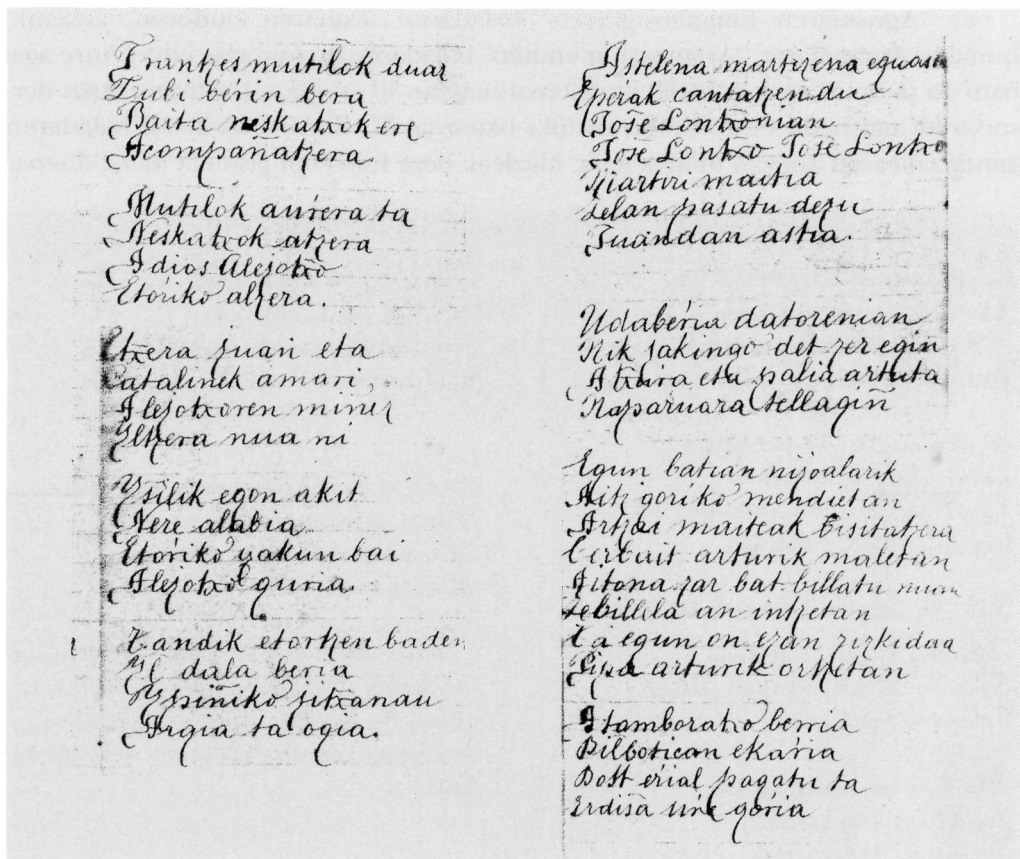 Frantzes mutilok duaz
Zubi beren bera
Baita neskatxok ere
Acompañatzera
Mutilok aurrera ta
Neskatxok atzera
Adios Alejotxo
Etoriko alzera.
Etxera juan eta
Catalinek amari
Alejotxoren minez
Iltzera nua ni
Ysilik egon akit
Nere alabia
Etoriko yakun bai
Alejotxo guria.
Handik etortzen baden
Il dala beria
Ypiñiko jitxanau
Argia ta ogia.
Astelena martizena eguasta
Eperak cantatzen du
Jose Lontxonian
Jose Lontxo Jose Lontxo
maitia
Zelan pasatu dezu
Juandan astia.
Udaberia datorenian
Nik jakingo det zer egiñ
Atxura eta palia artuta
Naparuara tellagiñ
Egun batian nijoalarik
Aitz goriko mendietan
Artzai maiteak bisitatzera
Cerbait arturik maletan
Aitona zar bat billatu nun
Zebillela an intzetan
Ta egun on ezan zizkidan
Pipa arturik ortzetan
Atamboratxo berria
Bilbotican ekaria
Bost erial pagatu ta
Erdisa urre goria